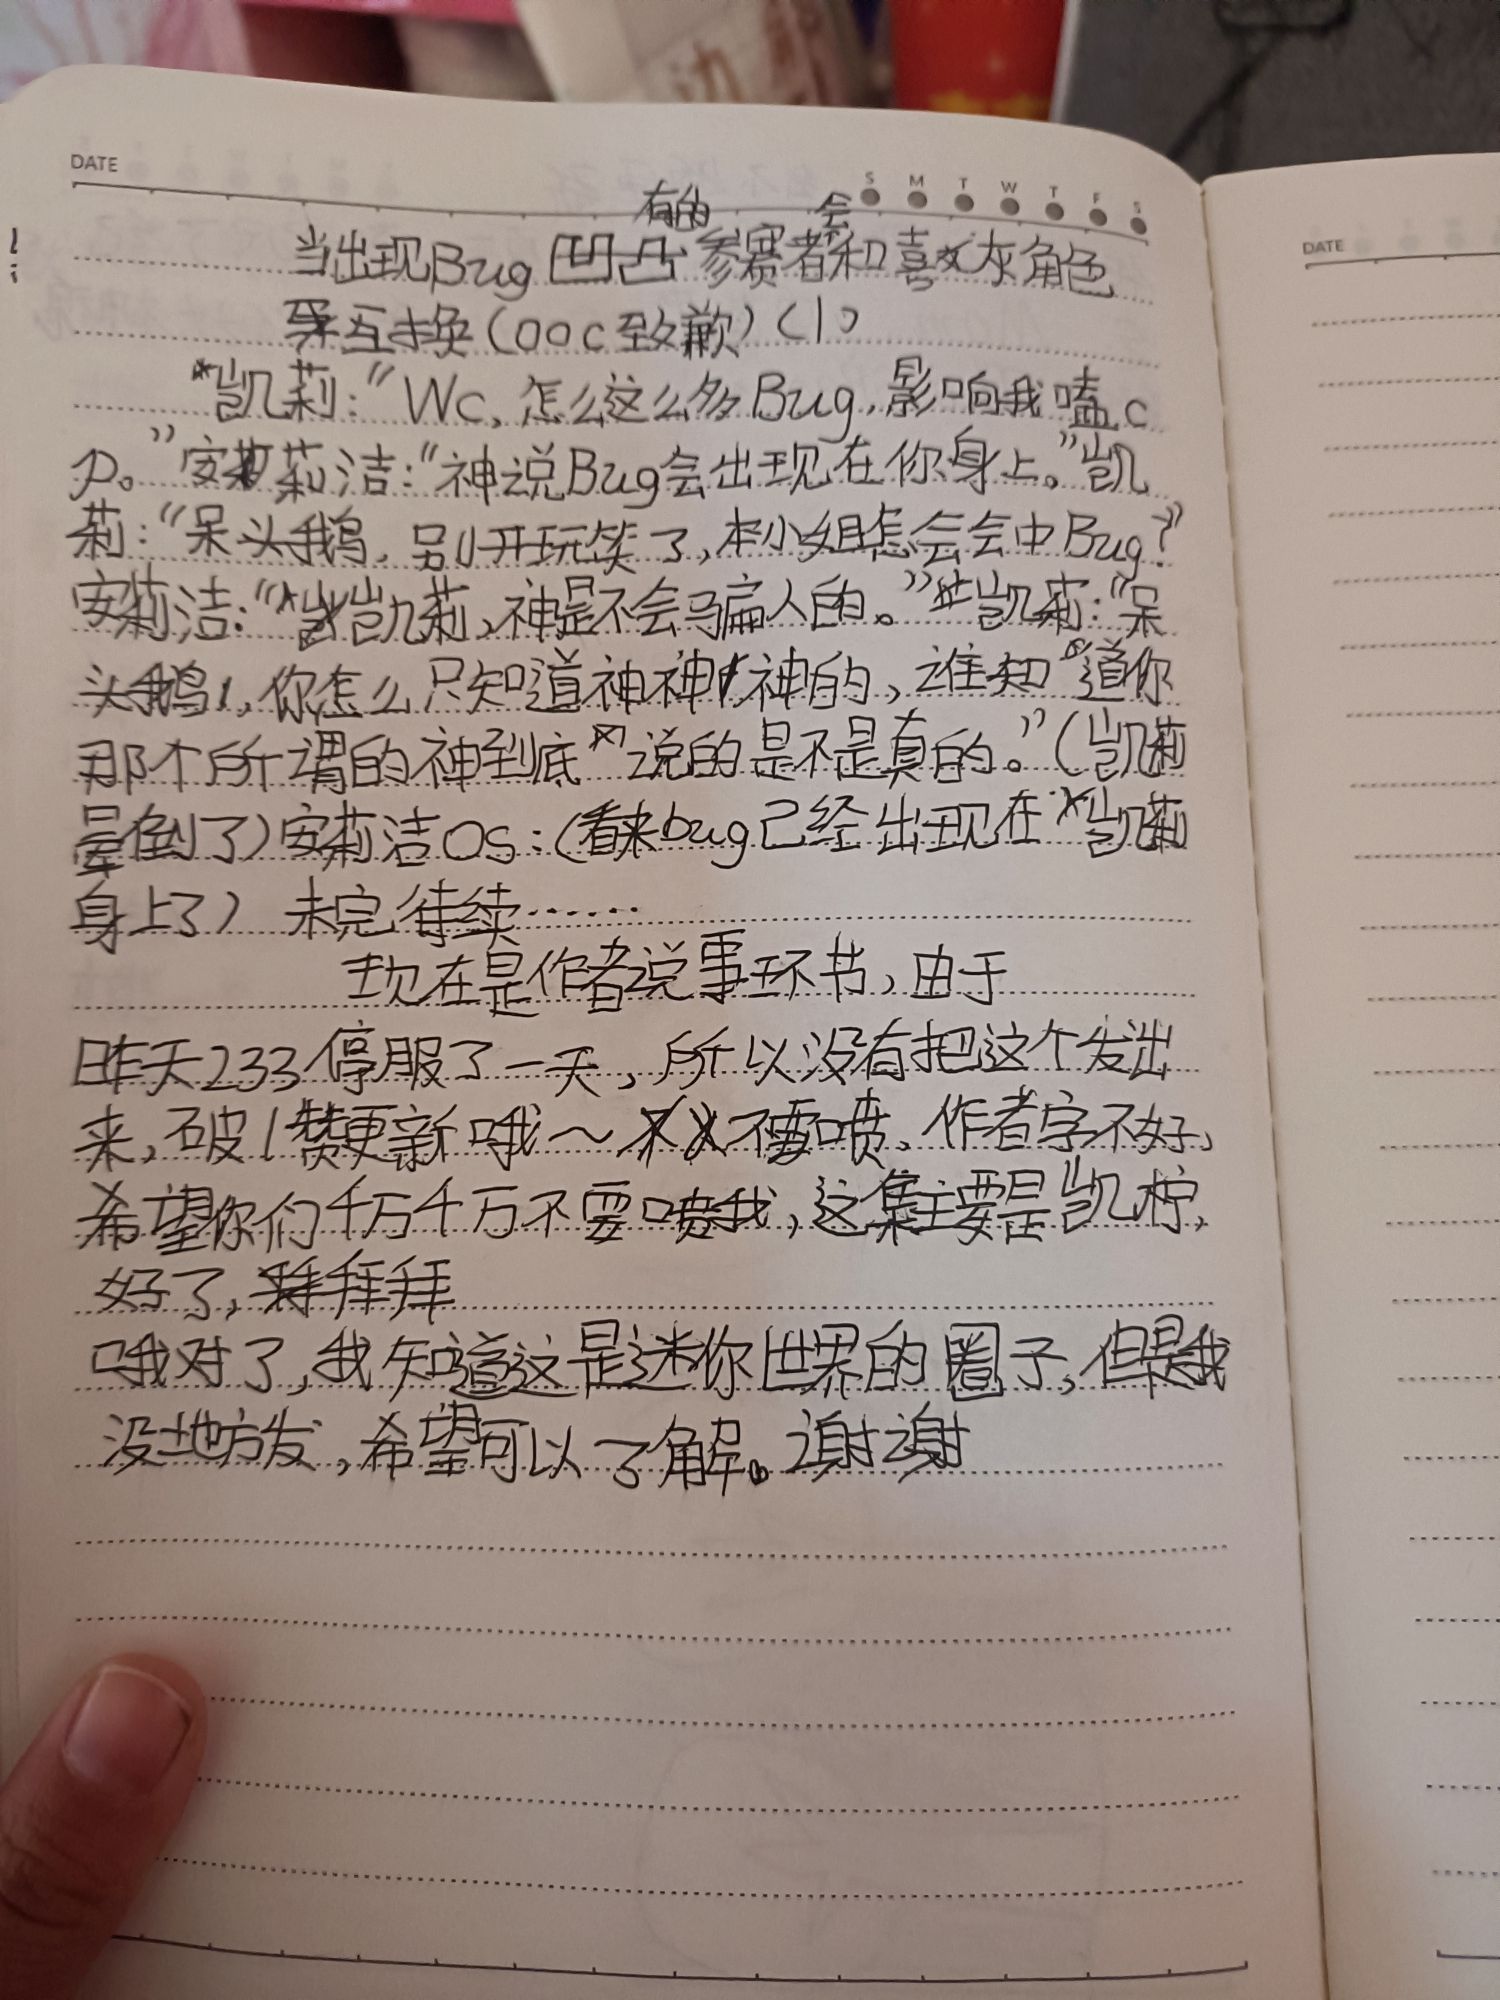 DATE
S M T W T F S
有的 会
当出现Bug 凹凸参赛者和喜灰角色
互换(ooc致歉)(1)
凯莉:“Wc,怎么这么多Bug,影响我嗑c
p。”安莉洁:“神说Bug会出现在你身上。”凯
莉:“呆头鹅,别开玩笑了,本小姐怎会会中Bug?”
安莉洁:“凯莉,神是不会骗人的。”凯莉:“呆
头鹅,你怎么只知道神神神的,谁知道你
那个所谓的神到底说的是不是真的。”(凯莉
晕倒了)安莉洁Os:(看来bug已经出现在凯莉
身上了) 未完待续……
现在是作者说事环节,由于
昨天233停服了一天,所以没有把这个发出
来,破1赞更新哦~不要喷,作者字不好,
希望你们千万千万不要喷我,这集主要是凯柠,
好了,拜拜
哦对了,我知道这是迷你世界的圈子,但是我
没地方发,希望可以了解。谢谢
DATE